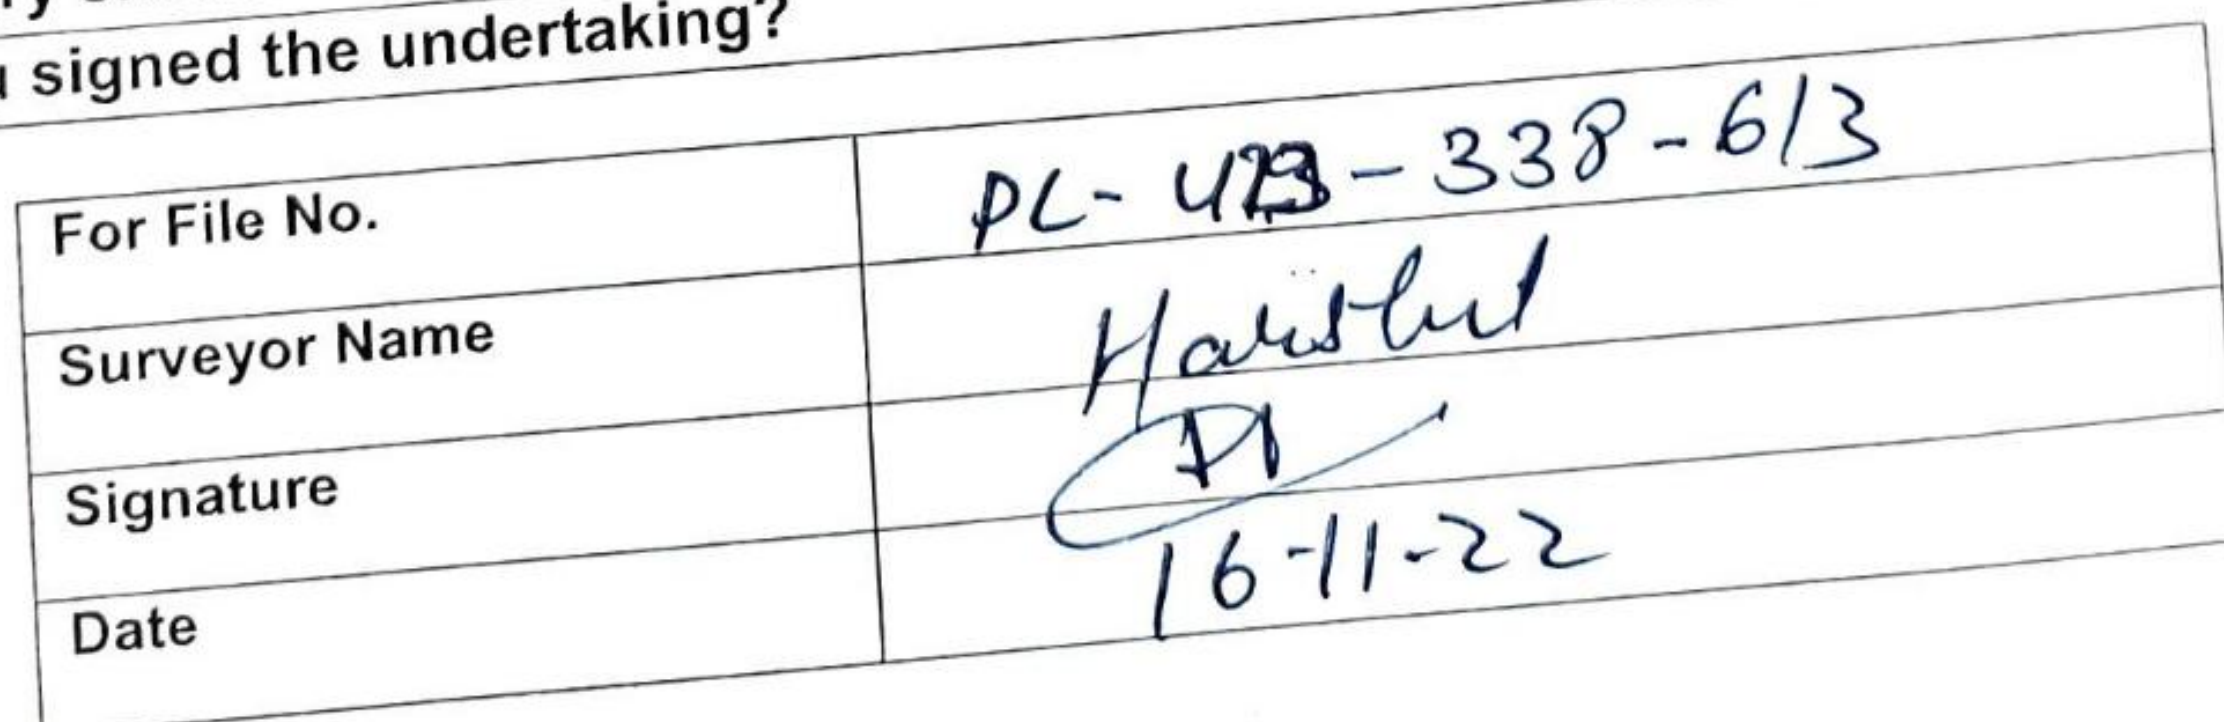 signed the undertaking?
For File No. PL- -338-613
Surveyor Name Harshul
Signature
Date 16-11-22